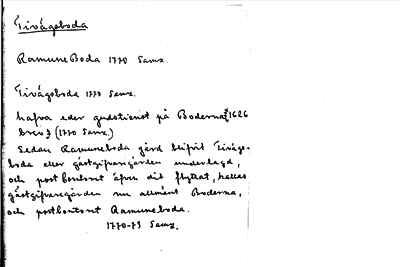 Tivägsboda
RamuneBoda 1770 Samz.
Tivägsboda 1770 Samz.
hafva eder gudstienst på Boderna 1626
brev (1770 Samz.)
Sedan Ramuneboda gård blifvit Tivägs-
boda eller gästgifvaregården underlagd,
och post kontoret äfven dit flyttat, kallas
gästgifvaregården nu allmänt Boderna,
och postkontoret Ramuneboda.
1770-73 Samz.